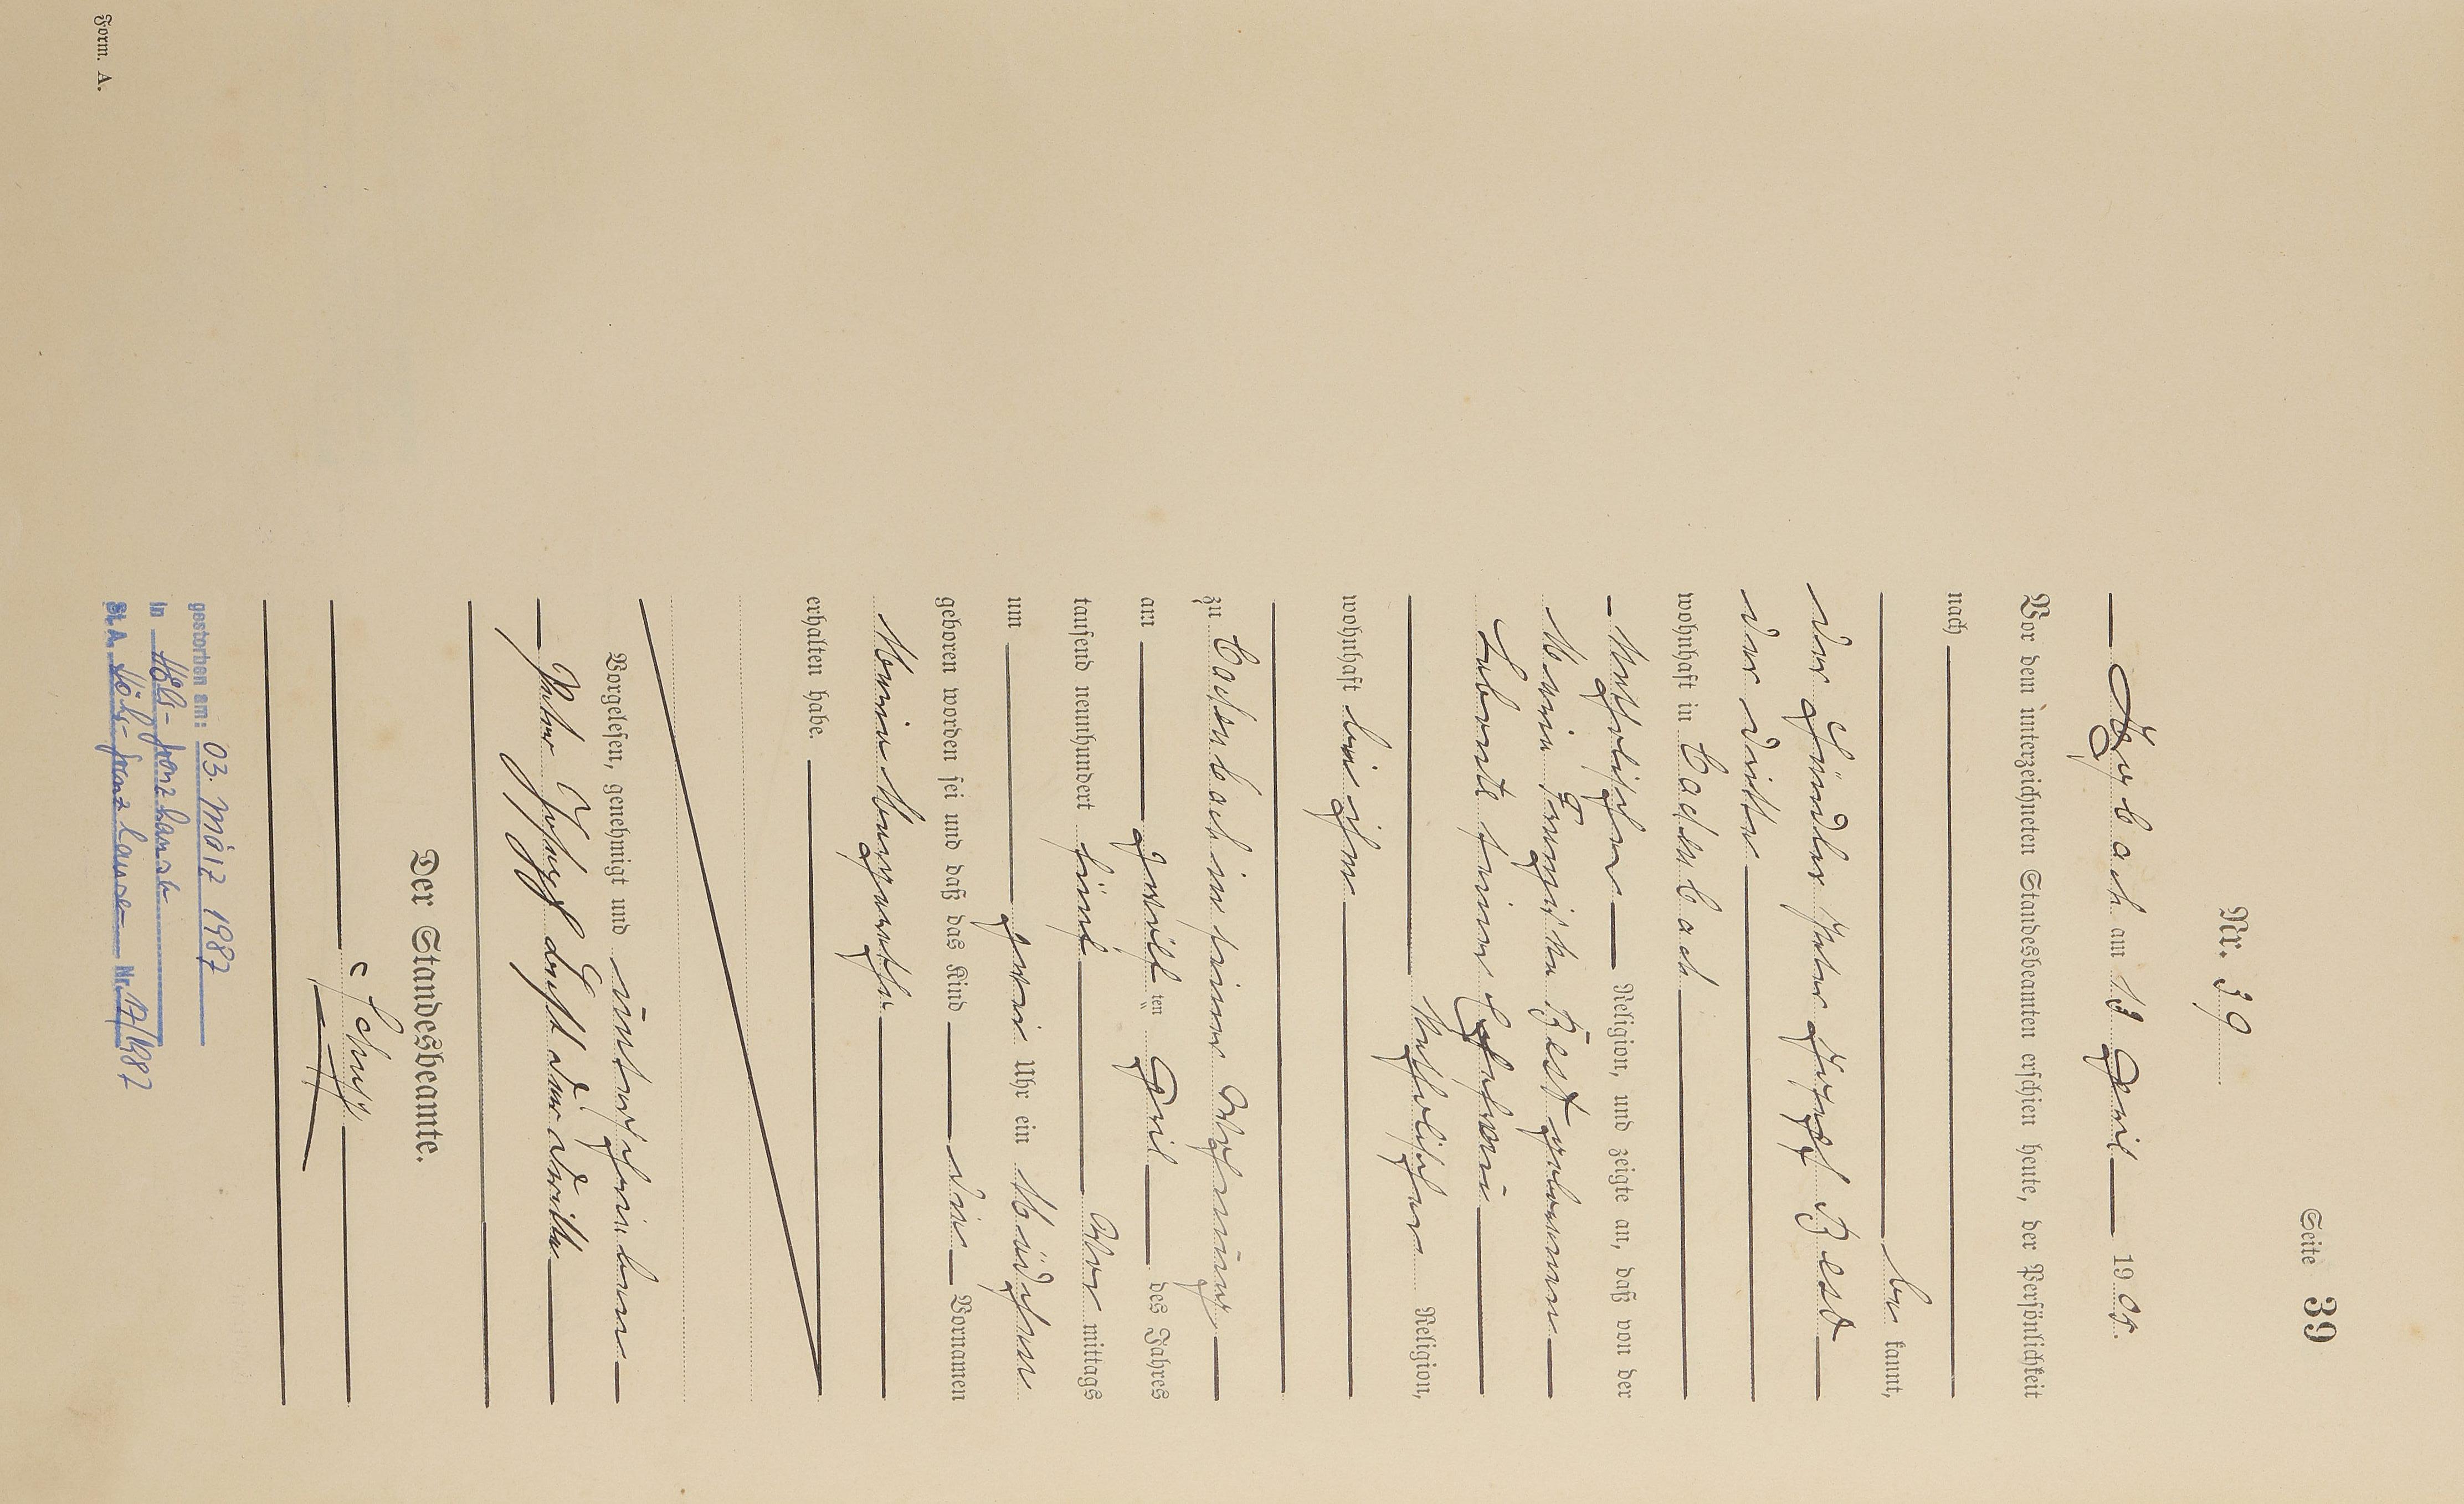 Seite 39
Nr. 39
am 13 April 1905.
Vor dem unterzeichneten Standesbeamten erschien heute, der Persönlichkeit
nach
be kannt,
der Händler Peter Joseph Best
der dritte
wohnhaft in
katholischer Religion, und zeigte an, daß von der
Maria Franziska Best geborenen
seiner Ehefrau
katholischer Religion,
wohnhaft bei ihm
zu in seiner Wohnung
am zwölf ten April des Jahres
tausend neunhundert fünf Vor mittags
um zwei Uhr ein Mädchen
geboren worden sei und daß das Kind die Vornamen
Maria Margaretha
erhalten habe.
Vorgelesen, genehmigt und unterschrieben
Peter Joseph Best der dritte
Der Standesbeamte.
gestorben am: 03. März 1987
in Höhr-Grenzhausen
St.A. Höhr-Grenzhausen Nr. 17/1987
Form. A.